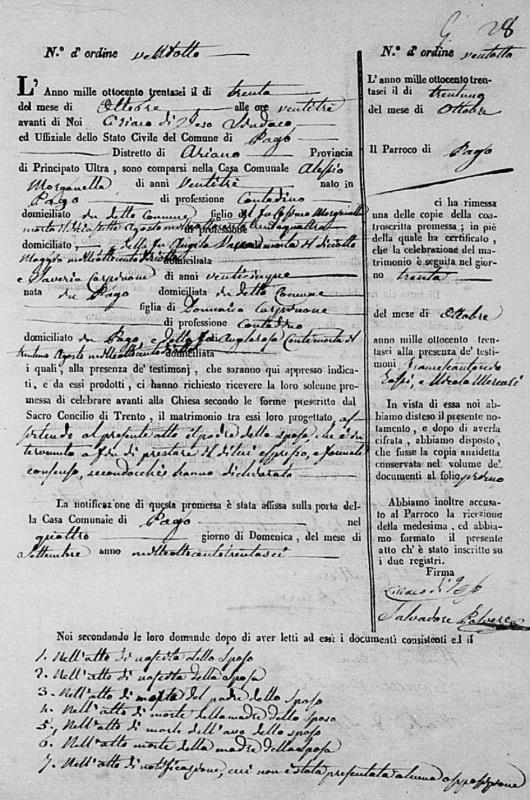 28
N.º d'ordine ventotto
L'Anno mille ottocento trentasei il dì trenta
del mese di Ottobre alle ore ventitrè
avanti di Noi Ciriaco di Peso Sindaco
ed Uffiziale dello Stato Civile del Comune di Pago
Distretto di Ariano Provincia
di Principato Ultra, sono comparsi nella Casa Comunale Alessio
Morganella di anni Ventitrè nato in
Pago di professione Contadino
domiciliato in detto Comune figlio del fu
morto Agosto
di professione
domiciliato, e della fu Angela morta il diciotto
Maggio
domiciliata
e Saveria di anni
nata in Pago domiciliata in detto Comune
figlia di Domenico
di professione Contadino
domiciliato in Pago e della fu Angiarosa morta il
trentuno Agosto domiciliata
i quali, alla presenza de' testimonj, che saranno quì appresso indica-
ti, e da essi prodotti, ci hanno richiesto ricevere la loro solenne
promessa di celebrare avanti alla Chiesa secondo le forme prescritte dal
Sacro Concilio di Trento, il matrimonio tra essi loro progettato, as-
sistendo al presente atto il padre della sposa che è in
tervenuto a fin di prestare il di lui espresso, e formale
consenso, secondocchè hanno dichiarato
La notificazione di questa promessa è stata affissa sulla porta del-
la Casa Comunale di Pago nel
quattro giorno di Domenica, del mese di
Settembre anno milleottocentotrentasei
N.º d'ordine ventotto
L'anno mille ottocento tren-
tasei il dì trentuno
del mese di Ottobre
Il Parroco di Pago
ci ha rimessa
una delle copie della con-
troscritta promessa; in piè
della quale ha certificato,
che la celebrazione del ma-
trimonio è seguita nel gior-
no trenta
del mese di Ottobre
anno mille ottocento tren-
tasei alla presenza de' testi-
moni Francescantonio
Zappi, e Nicola
In vista di essa noi ab-
biamo disteso il presente no-
tamento, e dopo di averla
cifrata, abbiamo disposto,
che fusse la copia anzidetta
conservata nel volume de'
documenti al folio primo
Abbiamo inoltre accusa-
to al Parroco la ricezione
della medesima, ed abbia-
mo formato il presente
atto ch'è stato inscritto su
i due registri.
Firma
Ciriaco di Peso
Salvadore Polvere
Noi secondando le loro domande dopo di aver letti ad essi i documenti consistenti ed il
1. Nell'atto di nascita dello sposo
2. Nell'atto di nascita della sposa
3. Nell'atto di morte del padre dello sposo
4. Nell'atto di morte della madre dello sposo
5. Nell'atto di morte dell'avo dello sposo
6. Nell'atto morte della madre della sposa
7. Nell'atto di notificazione, cui non è stata presentata alcuna opposizione